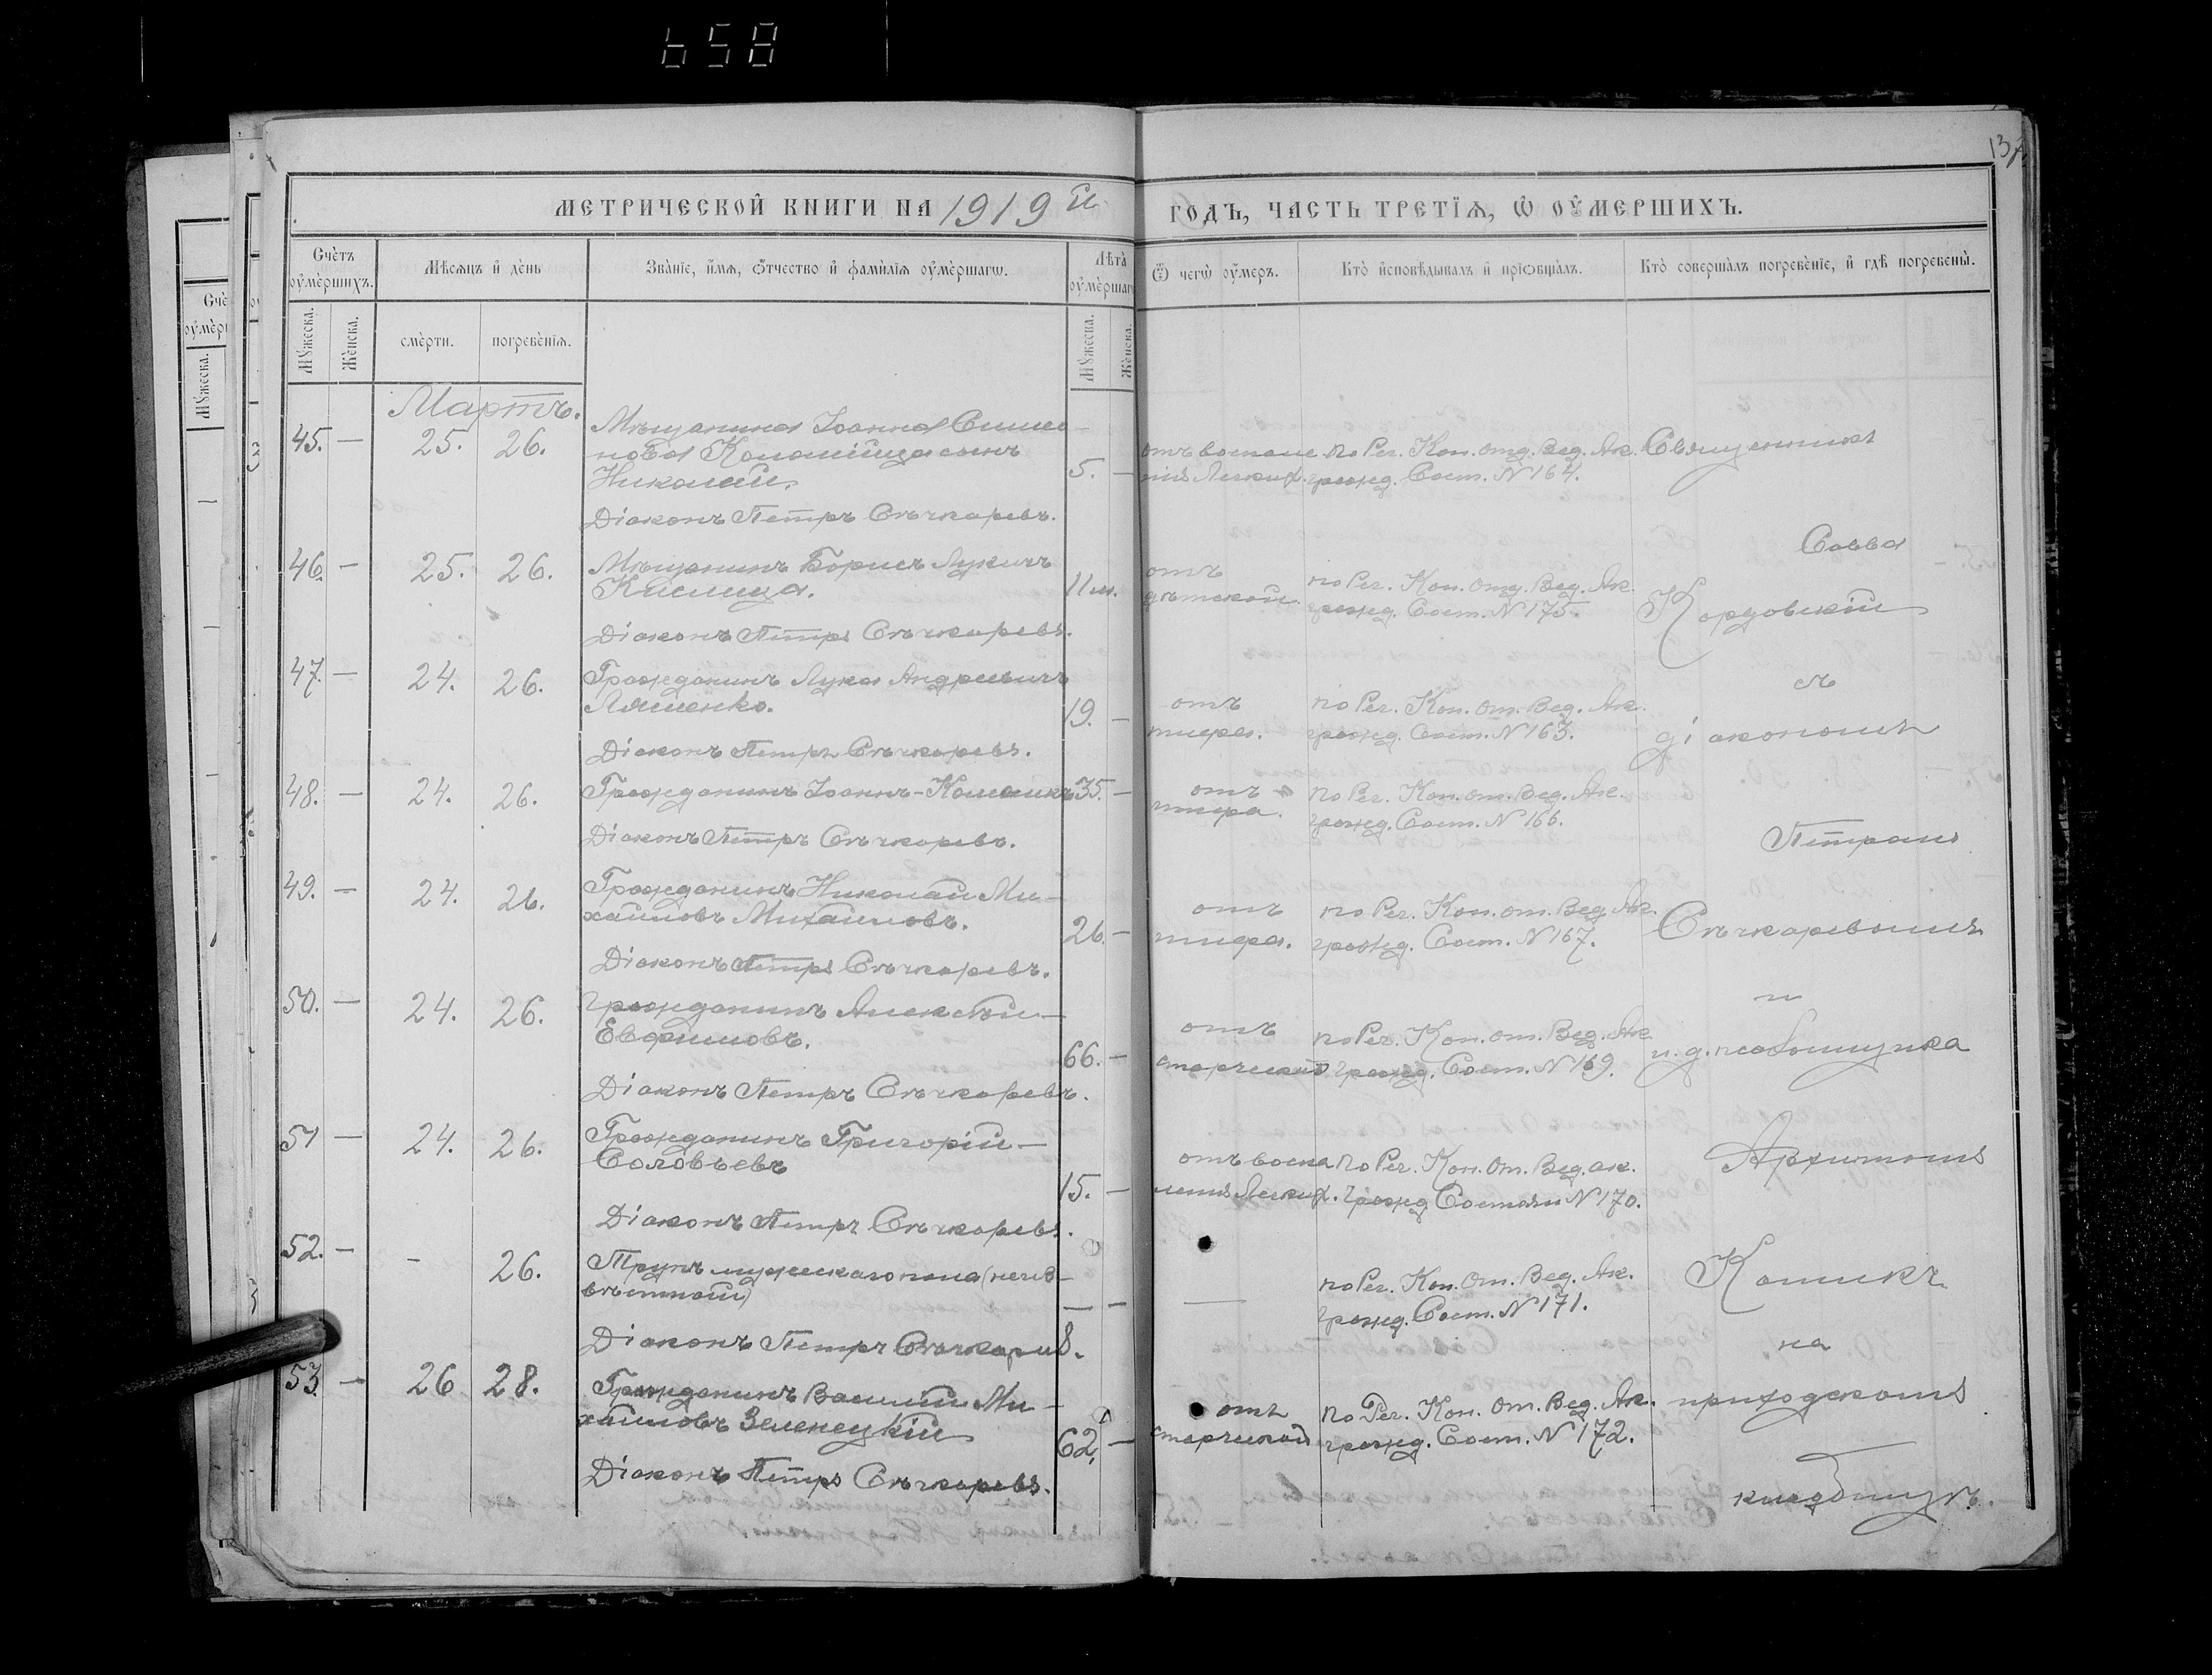 658
137
МЕТРИЧЕСКОЙ КНИГИ НА 1919й ГОДЪ, ЧАСТЬ ТРЕТІѦ, Ѿ ОУМЕРШИХЪ.
Счѐтъ оумѐршихъ.
Мѣсѧцъ и дѐнь
Зва̀нїе, имѧ, ѻтчество и фамилїѧ оумѐршагѡ.
Лѣта̀ оумѐршагѡ
Ѿ чегѡ̀ оумеръ.
Кто̀ исповѣдывалъ и прїѡбща̀лъ.
Кто̀ соверша̀лъ погребѐнїе, и гдѣ̀ погребены̀.
Мꙋжеска.
Жѐнска.
смѐрти.
погребѐнїѧ.
Мꙋжеска.
Жѐнска.
Мартъ.
45. — 25. 26.
Мѣщанина Іоанна Симео-
нова сынъ
Николай.
5. —
отъ воспале-
нія Легких.
по Рег. Кон. отд. Вед. Ак.
гражд. Сост. № 164.
Діаконъ Петръ Сѣчкаревъ.
46. — 25. 26.
Мѣщанинъ Борисъ Лукичъ
Кислица.
11 м.
отъ
дѣтской.
по Рег. Кон. отд. Вед. Ак.
гражд. Сост. № 175.
Діаконъ Петръ Сѣчкаревъ.
47. — 24. 26.
Гражданинъ Лука Андреевичъ
Ляшенко.
19. —
отъ
тифа.
по Рег. Кон. От. Вед. Ак.
гражд. Сост. № 163.
Діаконъ Петръ Сѣчкаревъ.
48. — 24. 26.
Гражданинъ Іоаннъ-
35. —
отъ
тифа.
по Рег. Кон. от. Вед. Ак.
гражд. Сост. № 166.
Діаконъ Петръ Сѣчкаревъ.
49. — 24. 26.
Гражданинъ Николай Ми-
хайловъ Михайловъ.
26. —
отъ
тифа.
по Рег. Кон. от. Вед. Ак.
гражд. Сост. № 167.
Діаконъ Петръ Сѣчкаревъ.
50. — 24. 26.
Гражданинъ Алексѣй —
Евфимовъ.
66. —
отъ
старческой
по Рег. Кон. от. Вед. Ак
гражд. Сост. № 169.
Діаконъ Петръ Сѣчкаревъ.
51 — 24. 26.
Гражданинъ Григорій —
Соловьевъ
15. —
отъ воспа
ленія Легких.
по Рег. Кон. От. Вед. ак.
Гражд Состоян № 170.
Діаконъ Петръ Сѣчкаревъ.
52. — - 26.
Трупъ мужескаго пола (неиз-
вѣстной)
— —
—
по Рег. Кон. От. Вед. Ак.
Гражд. Сост. № 171.
Діаконъ Петръ Сѣчкаревъ.
53. — 26 28.
Гражданинъ Василій Ми-
хайловъ Зеленецкій
62. —
отъ
старческой
по Рег. Кон. От. Вед. Ак.
гражд. Сост. № 172.
Діаконъ Петръ Сѣчкаревъ.
Священникъ
Савва
Кордовскій
съ
діакономъ
Петромъ
Сѣчкаревымъ
и
и. д. псаломщика
Кошикъ
на
приходскомъ
кладбищѣ.